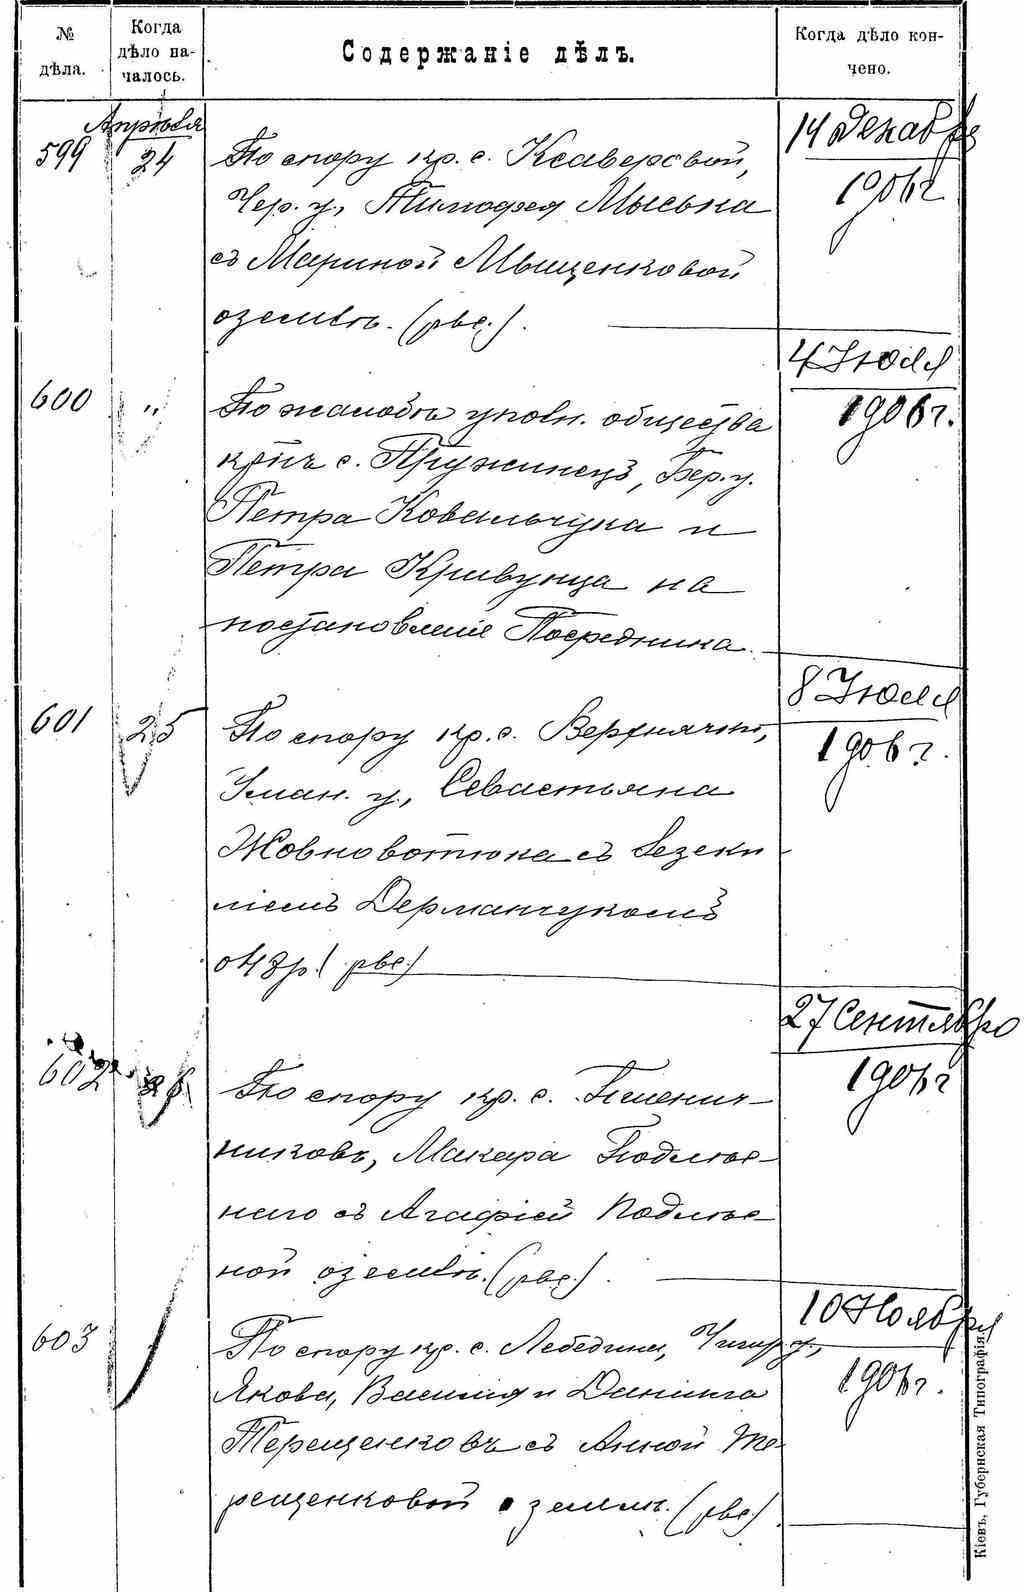 № дѣла.
Когда дѣло на-
чалось.
Содержаніе дѣлъ.
Когда дѣло кон-
чено.
Апрѣля
599
24
По спору кр. с. Ксаверовой,
Чер. у., Тимофея Мыська
съ Мариной Мищенковой
о землѣ. (рве.).
14 Декабря
1906 г
600
"
По жалобѣ упов. общества
кр. с. Пружинецъ, Бер. у.
Петра Ковальчука и
Петра Кривунца на
постановленіе Посредника.
4 Июля
1906 г.
601
25
По спору кр. с. Верхнячки,
Уман. у., Севастьяна
Жовноватюка съ Іезеки-
ліемъ Дерманчукомъ
(рве.)
8 Июля
1906 г.
602
26
По спору кр. с. Пшенич-
никовъ, Макара Подлѣс-
наго съ Агафіей Подлѣс-
ной о землѣ. (рве.).
27 Сентября
1906 г
603
По спору кр. с. Лебедина, Чигир. у.,
Якова, Василія и Даніила
Терещенковъ съ Анной Те-
рещенковой о землѣ. (рве.).
10 Ноября
1906 г.
Кіевъ, Губернская Типографія.